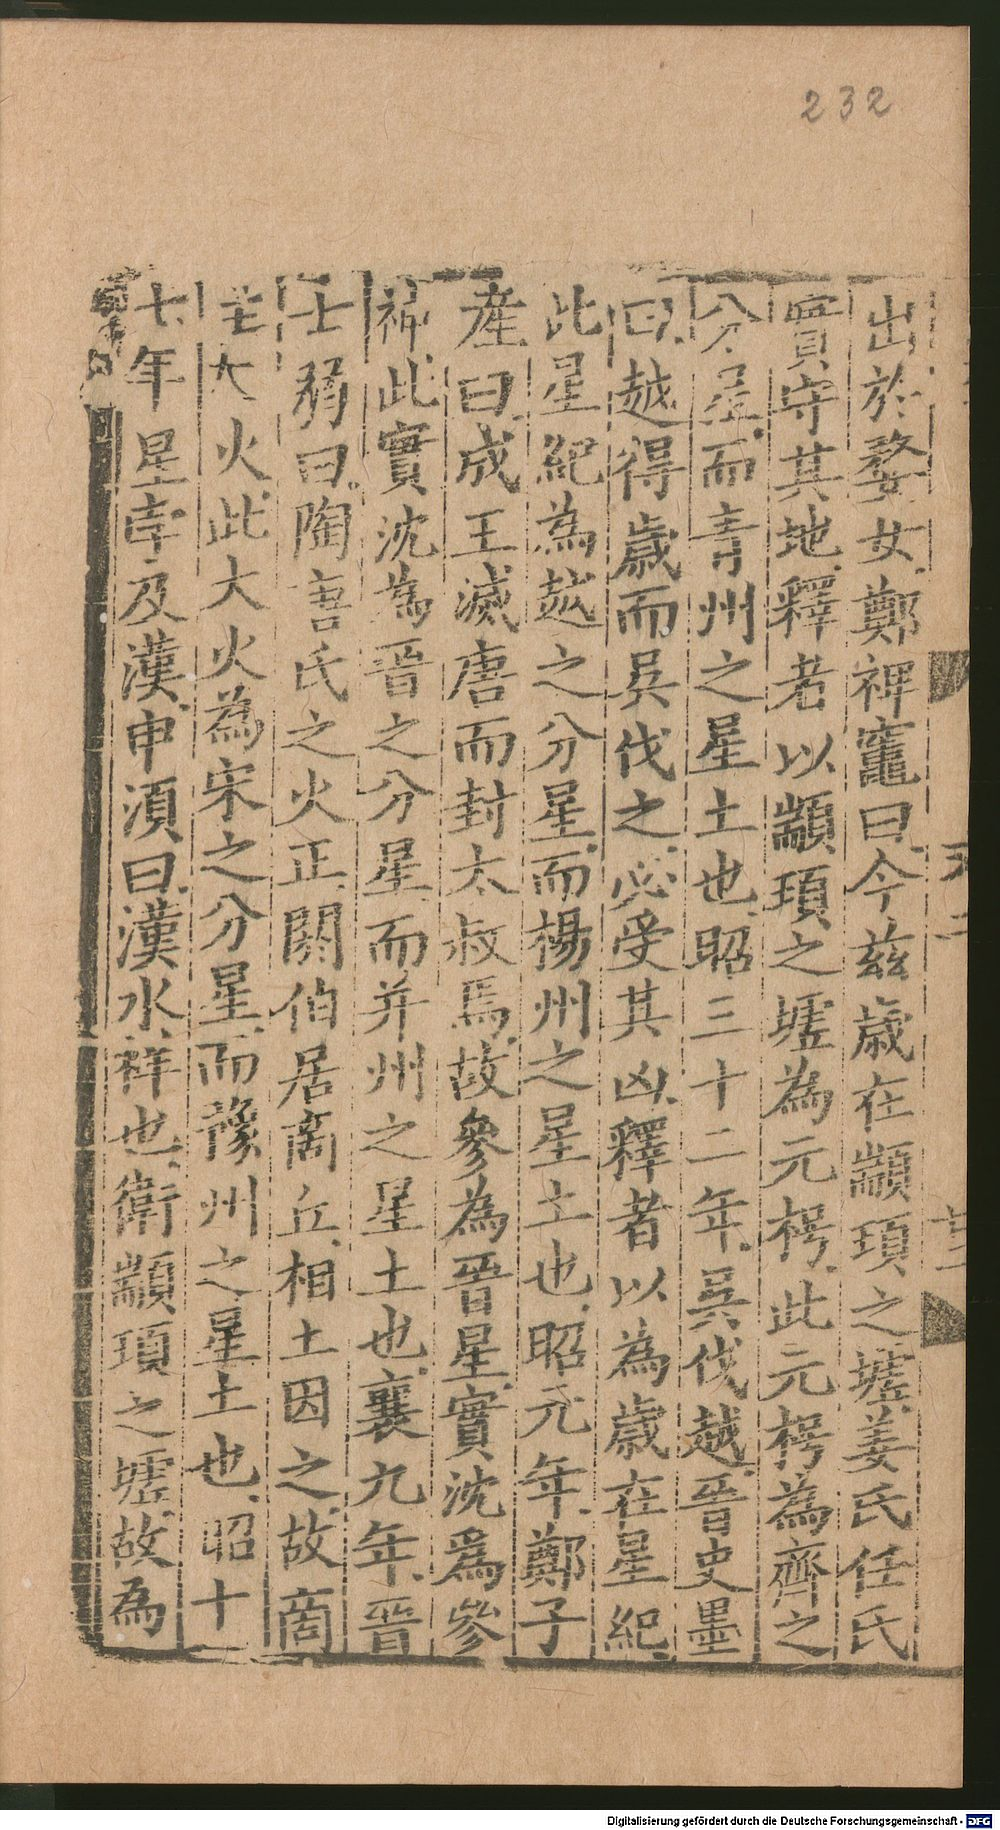 232
出於婺女鄭裨竈曰今茲歲在顓頊之墟姜氏任氏
實守其地釋者以顓頊之墟為元枵此元枵為齊之
分星而青州之星土也昭三十二年吳伐越晉史墨
曰越得歲而吳伐之必受其凶釋者以為歲在星紀
此星紀為越之分星而楊州之星土也昭元年鄭子
產曰成王滅唐而封太叔焉故參為晉星實沈爲參
神此實沈為晉之分星而并州之星土也襄九年晉
士弱曰陶唐氏之火正閼伯居商丘相土因之故商
主大火此大火為宋之分星而豫州之星土也昭十
七年星孛及漢申須曰漢水祥也衛顓頊之墟故為
Digitalisierung gefördert durch die Deutsche Forschungsgemeinschaft - DFG